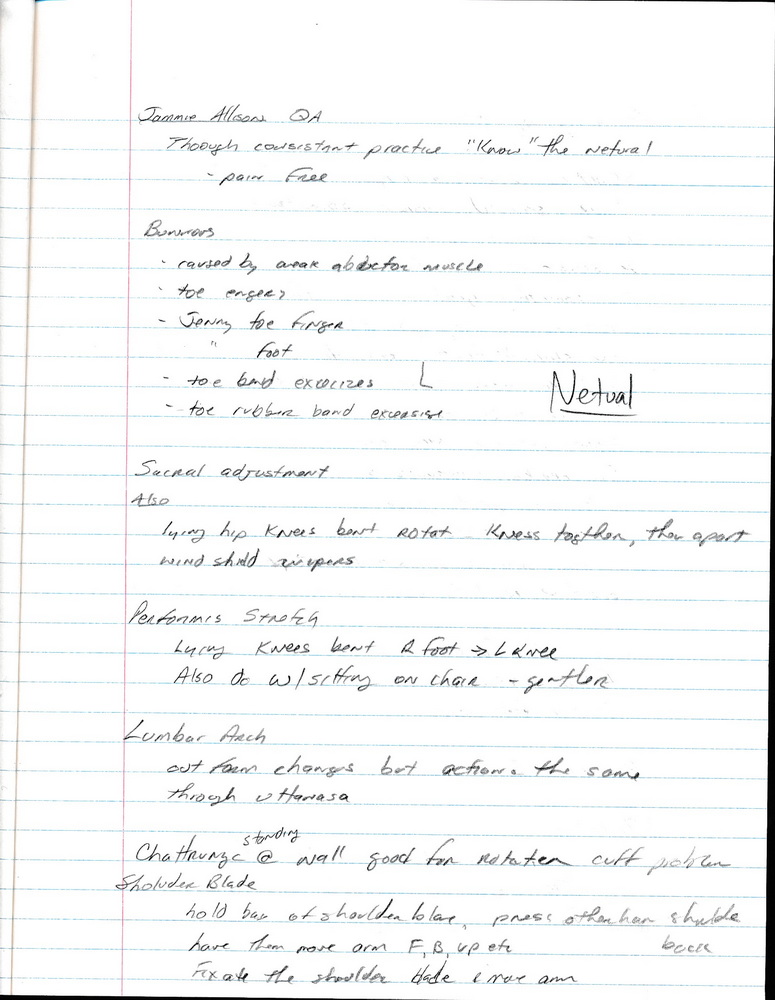 Jammie Allison QA
Though consistant practice "Know" the netural
- pain Free
Bunnions
- caused by weak abductor muscle
- toe
- Jenny toe finger
" foot
- toe band excercizes L
- toe rubber band
Netual
Sacral adjustment
Also
lying hip Knees bent Rotat Kness togther, then apart
wind shild wipers
Performis Stretch
Lying Knees bent R foot → L Knee
Also do w/ sitting on chair - gentler
Lumbar Arch
out form changes but actions the same
through uttanasa
standing
Chattrunga @ wall good for rotater cuff problem
Sholuder Blade
hold bac of shoulder blae, press other han shulde
have them move arm F, B, up etc back
Fixate the shoulder blade & move arm